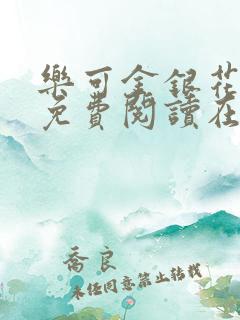 樂可金銀花
免費閱讀在
喬良
未經同意禁止轉載